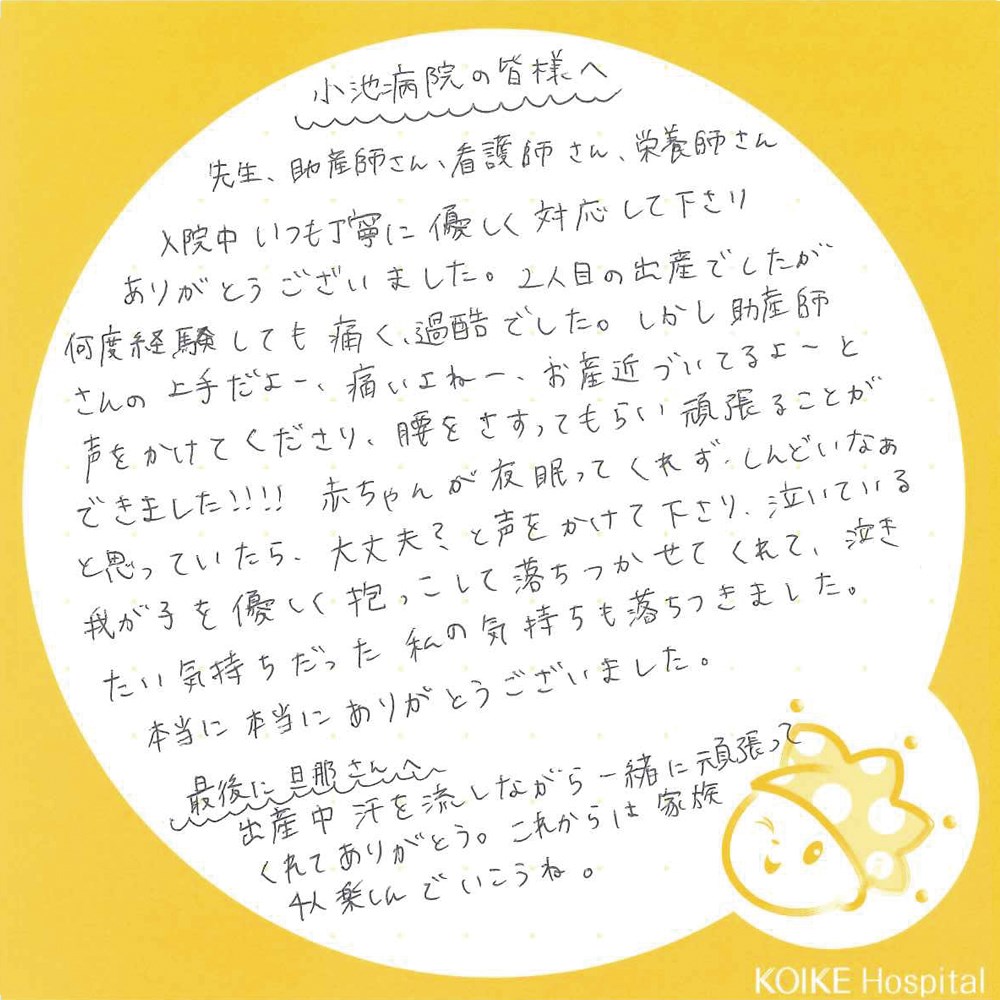 小池病院の皆様へ
先生、助産師さん、看護師さん、栄養師さん
入院中いつも丁寧に優しく対応して下さり
ありがとうございました。2人目の出産でしたが
何度経験しても痛く、過酷でした。しかし助産師
さんの上手だよー、痛いよねー、お産近づいてるよ〜と
声をかけてくださり、腰をさすってもらい頑張ることが
できました!!!! 赤ちゃんが夜眠ってくれず、しんどいなぁ
と思っていたら、大丈夫？と声をかけて下さり、泣いている
我が子を優しく抱っこして落ちつかせてくれて、泣き
たい気持ちだった私の気持ちも落ちつきました。
本当に本当にありがとうございました。
最後に旦那さんへ
出産中汗を流しながら一緒に頑張って
くれてありがとう。これからは家族
4人楽しんでいこうね。
KOIKE Hospital